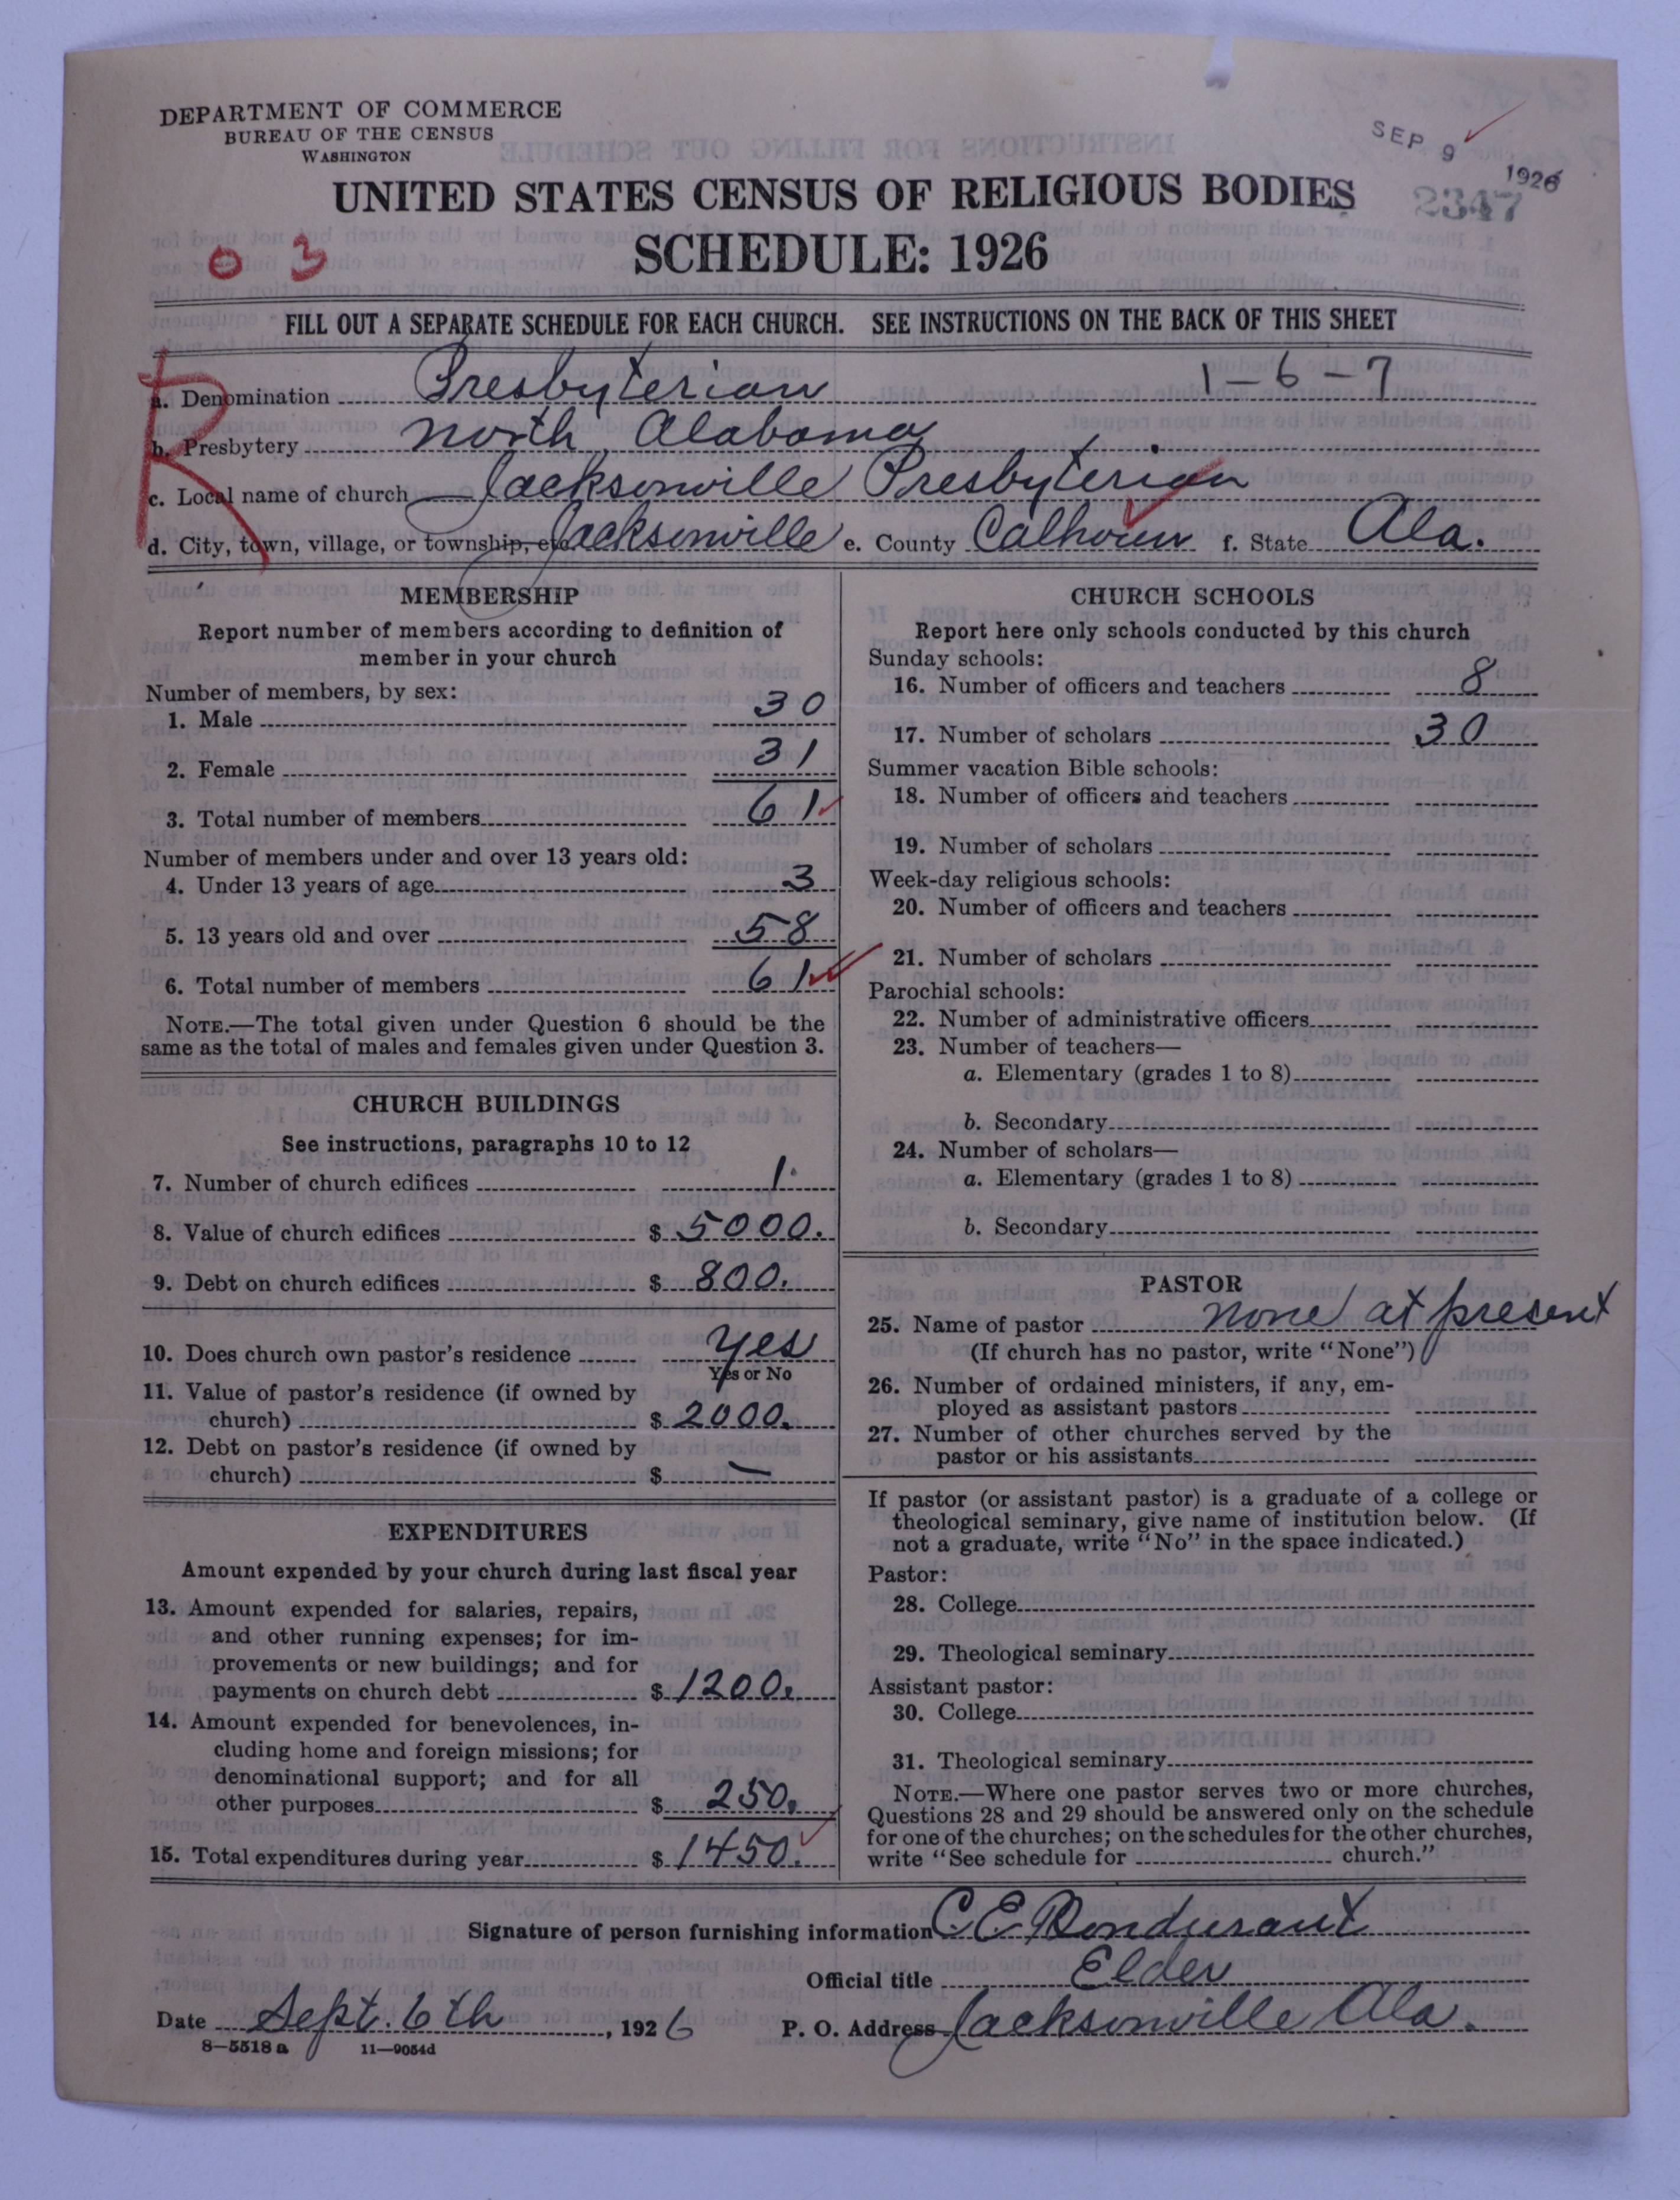 DEPARTMENT OF COMMERCE
BUREAU OF THE CENSUS
WASHINGTON
SEP 9 1926
2347
UNITED STATES CENSUS OF RELIGIOUS BODIES
SCHEDULE: 1926
0 3
FILL OUT A SEPARATE SCHEDULE FOR EACH CHURCH. SEE INSTRUCTIONS ON THE BACK OF THIS SHEET
R
1-6-7
a. Denomination Presbyterian
b. Presbytery North Alabama
c. Local name of church Jacksonville Presbyterian
d. City, town, village, or township, etc. Jacksonville e. County Calhoun f. State Ala.
MEMBERSHIP
Report number of members according to definition of
member in your church
Number of members, by sex:
1. Male 30
2. Female 31
3. Total number of members 61
Number of members under and over 13 years old:
4. Under 13 years of age 3
5. 13 years old and over 58
6. Total number of members 61
NOTE.—The total given under Question 6 should be the
same as the total of males and females given under Question 3.
CHURCH BUILDINGS
See instructions, paragraphs 10 to 12
7. Number of church edifices 1
8. Value of church edifices $ 5000.
9. Debt on church edifices $ 800.
10. Does church own pastor's residence yes
Yes or No
11. Value of pastor's residence (if owned by
church) $ 2000.
12. Debt on pastor's residence (if owned by
church) $ —
EXPENDITURES
Amount expended by your church during last fiscal year
13. Amount expended for salaries, repairs,
and other running expenses; for im-
provements or new buildings; and for
payments on church debt $ 1200.
14. Amount expended for benevolences, in-
cluding home and foreign missions; for
denominational support; and for all
other purposes $ 250.
15. Total expenditures during year $ 1450.
CHURCH SCHOOLS
Report here only schools conducted by this church
Sunday schools:
16. Number of officers and teachers 8
17. Number of scholars 30
Summer vacation Bible schools:
18. Number of officers and teachers
19. Number of scholars
Week-day religious schools:
20. Number of officers and teachers
21. Number of scholars
Parochial schools:
22. Number of administrative officers
23. Number of teachers—
a. Elementary (grades 1 to 8)
b. Secondary
24. Number of scholars—
a. Elementary (grades 1 to 8)
b. Secondary
PASTOR
25. Name of pastor none at present
(If church has no pastor, write "None")
26. Number of ordained ministers, if any, em-
ployed as assistant pastors
27. Number of other churches served by the
pastor or his assistants
If pastor (or assistant pastor) is a graduate of a college or
theological seminary, give name of institution below. (If
not a graduate, write "No" in the space indicated.)
Pastor:
28. College
29. Theological seminary
Assistant pastor:
30. College
31. Theological seminary
NOTE.—Where one pastor serves two or more churches,
Questions 28 and 29 should be answered only on the schedule
for one of the churches; on the schedules for the other churches,
write "See schedule for church."
Signature of person furnishing information C E Bondurant
Official title Elder
Date Sept. 6th, 1926 P. O. Address Jacksonville Ala.
8—5518 a 11—9054d